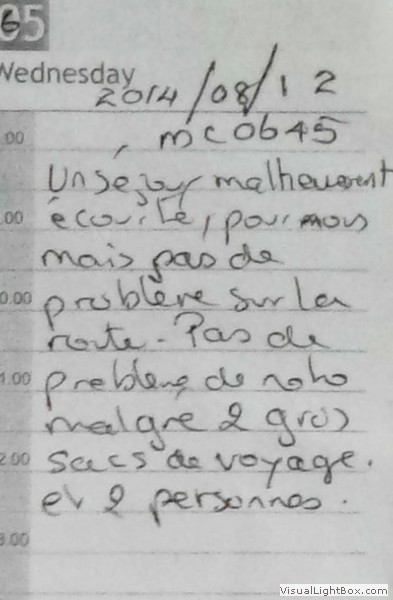 65
Wednesday
2014/08/12
.00 , mc0645
Un séjour malheureusent
.00 écourté, pour nous
mais pas de
0.00 problère sur la
route - Pas de
1.00 problème de moto
malgré 2 gros
2.00 sacs de voyage.
et 2 personnes.
3.00
VisualLightBox.com